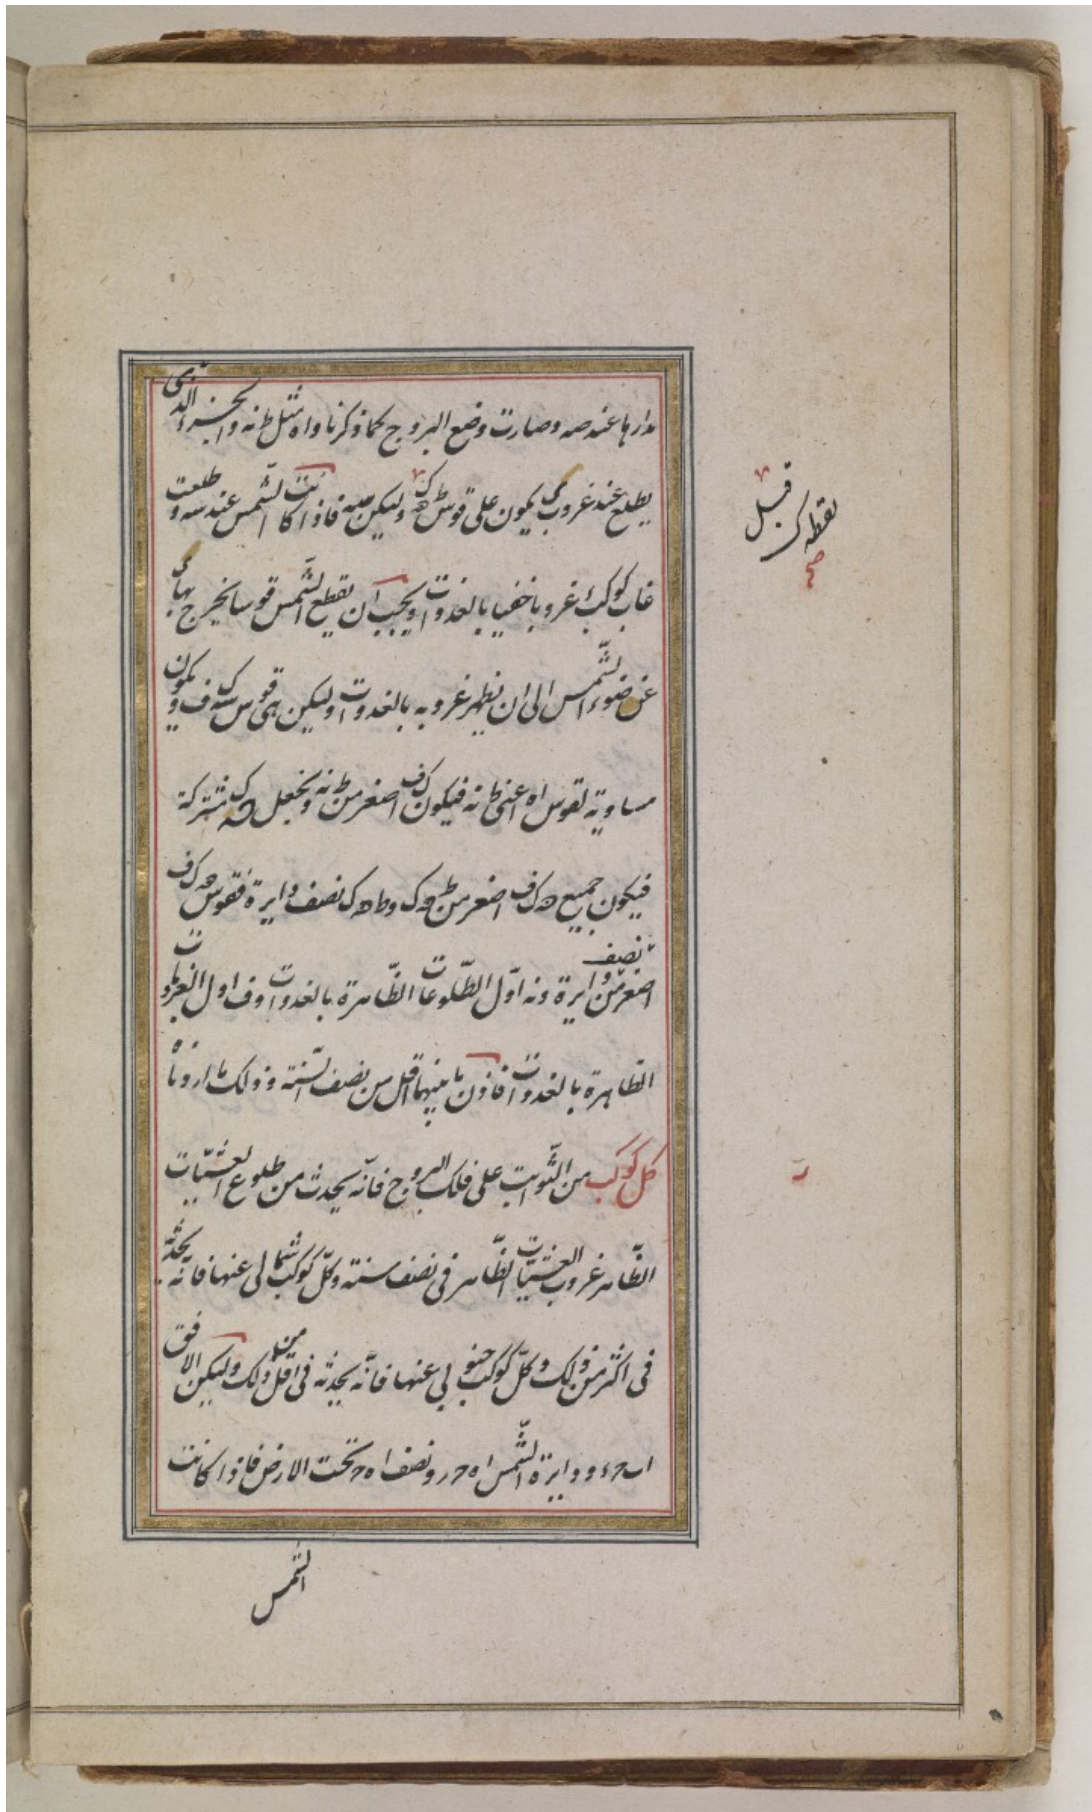 مدارها عند صه وصارت وضع البروج كما ذكرنا و اه مثل ط نه والجزء الذى
يطلع عند غروب ى يكون على قوس ط ه ك وليكن صه فاذا كانت الشمس عند سه و طلعت
غاب كوكب ى غروبا خفيا بالغدوات ويجب ان يقطع الشمس قوسا يخرج بها ى
عن ضوء الشمس الى ان يظهر غروبه بالغدوات وليكن هى قوس سه ف ويكون
مساوية لقوس اه اعنى ط نه فيكون ك ف اصغر من ط نه ونجعل ه ك مشتركة
فيكون جميع ه ك ف اصغر من ط ه ك و ط ه ك نصف دايرة فقوس ه ك ف
اصغر من نصف دايرة و نه اول الطلوعات الظاهرة بالغدوات و ف اول الغروبات
الظاهرة بالغدوات فاذن ما بينهما اقل من نصف السنة وذلك ما اردناه
كل كوكب من الثوابت على فلك البروج فانه يحدث من طلوع العشيات
الظاهر غروب العشيات الظاهر فى نصف سنة وكل كوكب شمالى عنها فانه يحدثه
فى اكثر من ذلك وكل كوكب جنوبى عنها فانه يحدثه فى اقل من ذلك وليكن الافق
اب ح د ودايرة الشمس اه ح ر ونصف اه ح تحت الارض فاذا كانت
الشمس
نقطه ك قبل
صح